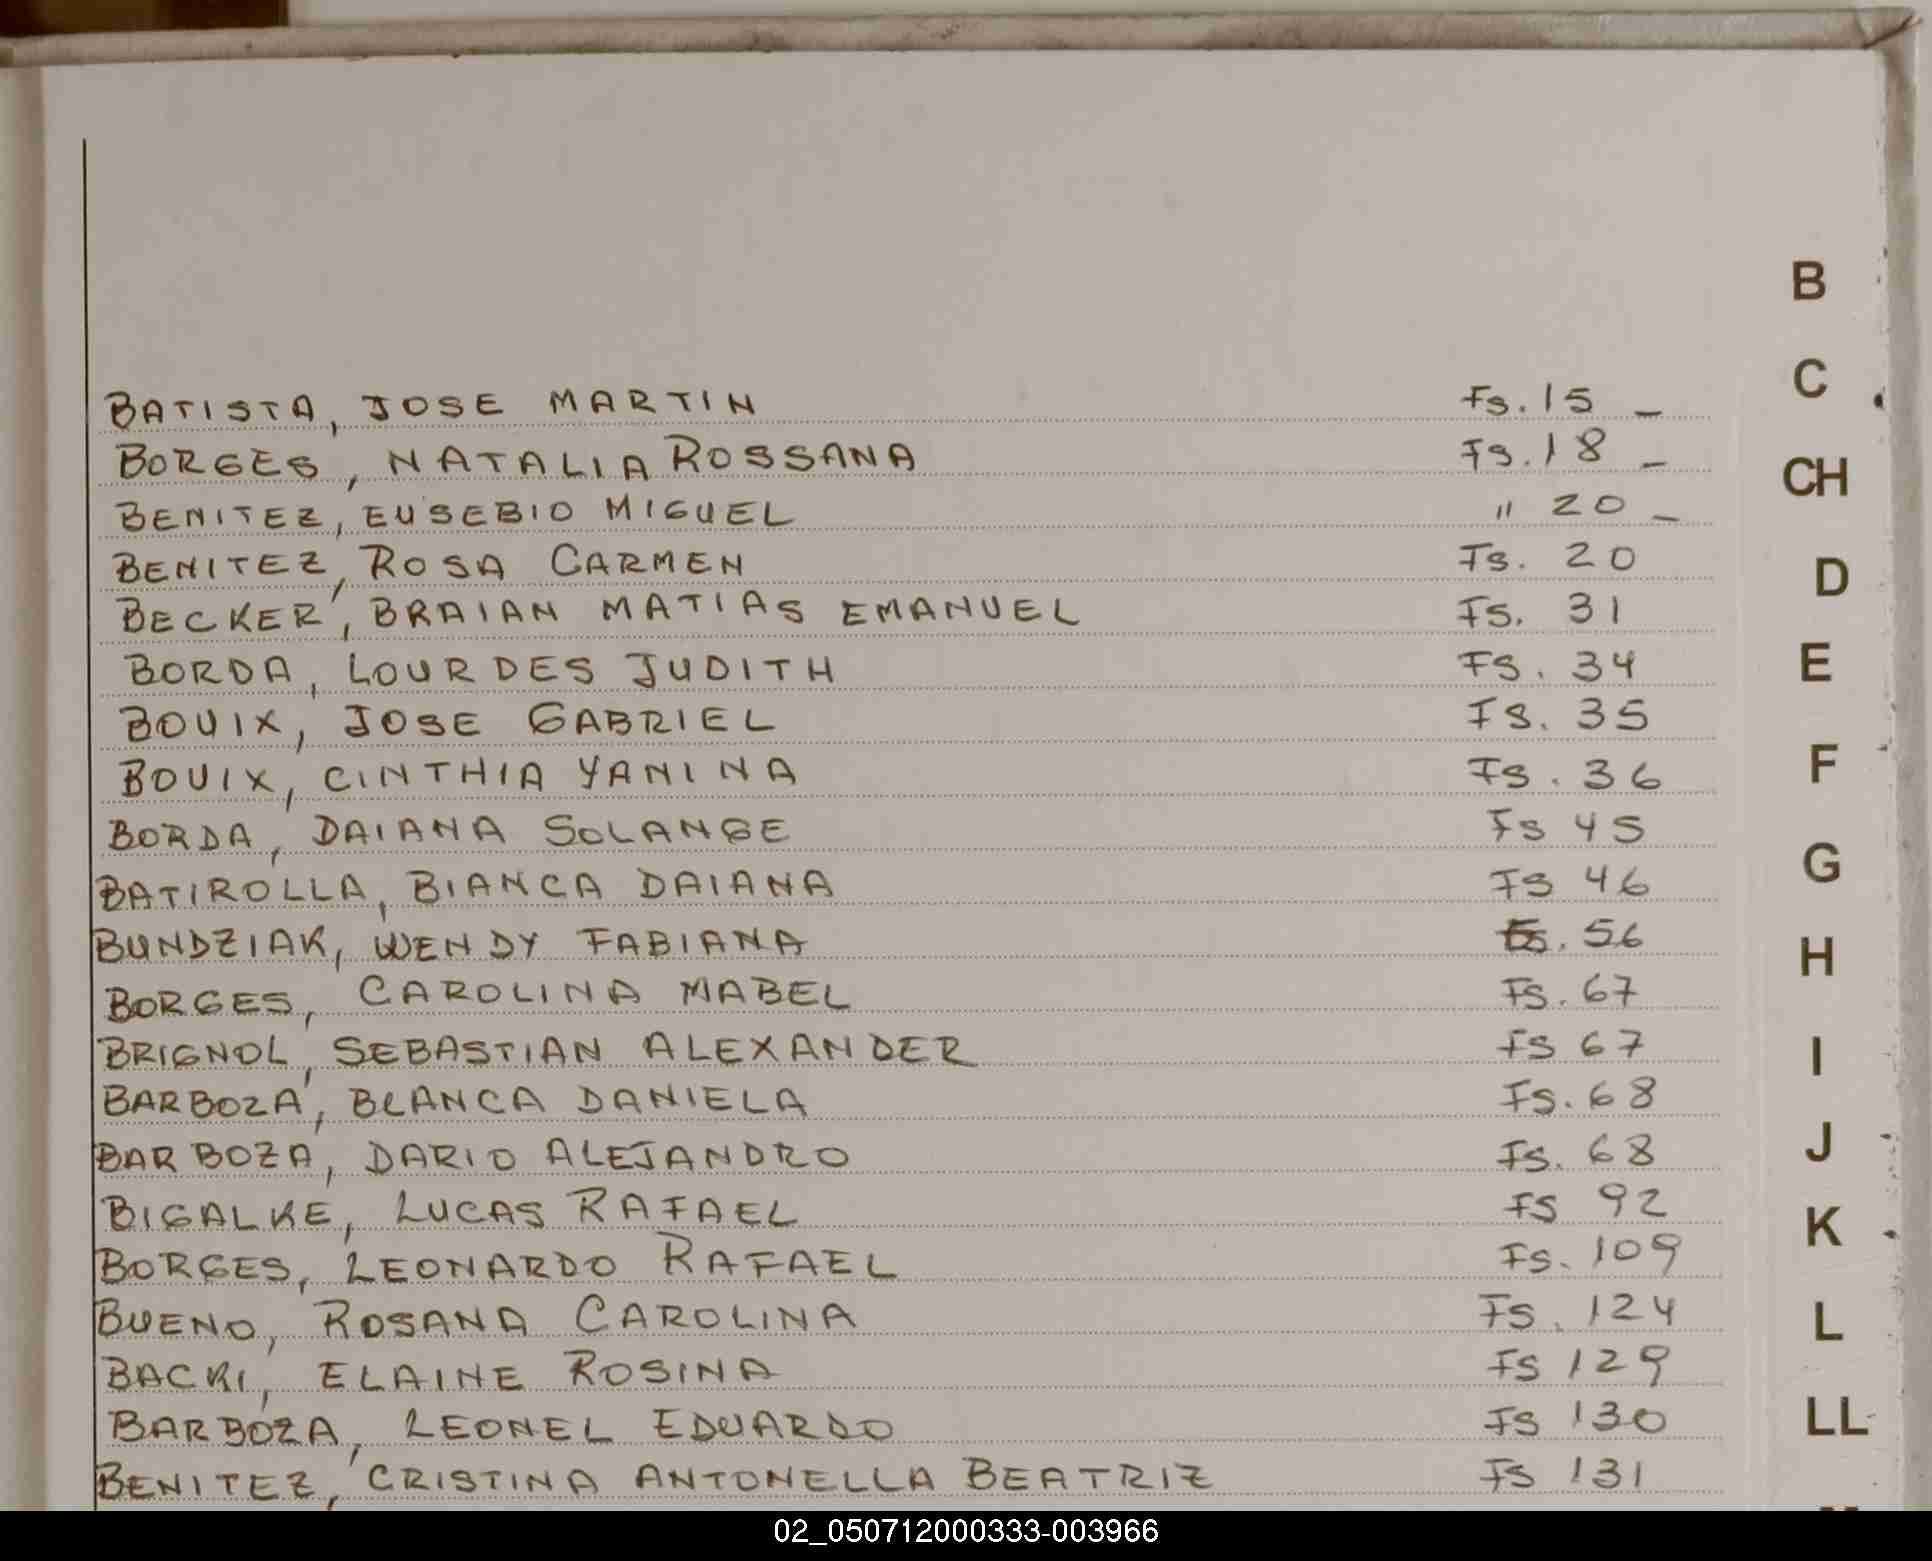 BATISTA, JOSE MARTIN Fs. 15 –
BORGES, NATALIA ROSSANA Fs. 18 –
BENITEZ, EUSEBIO MIGUEL " 20 –
BENITEZ, ROSA CARMEN Fs. 20
BECKER, BRAIAN MATIAS EMANUEL Fs. 31
BORDA, LOURDES JUDITH FS. 34
BOUIX, JOSE GABRIEL FS. 35
BOUIX, CINTHIA YANINA Fs. 36
BORDA, DAIANA SOLANGE Fs 45
BATIROLLA, BIANCA DAIANA FS 46
BUNDZIAK, WENDY FABIANA Fs. 56
BORGES, CAROLINA MABEL FS. 67
BRIGNOL, SEBASTIAN ALEXANDER FS 67
BARBOZA, BLANCA DANIELA FS. 68
BARBOZA, DARIO ALEJANDRO FS. 68
BIGALKE, LUCAS RAFAEL FS 92
BORGES, LEONARDO RAFAEL FS. 109
BUENO, ROSANA CAROLINA FS. 124
BACKI, ELAINE ROSINA FS 129
BARBOZA, LEONEL EDUARDO FS 130
BENITEZ, CRISTINA ANTONELLA BEATRIZ FS 131
B
C
CH
D
E
F
G
H
I
J
K
L
LL
02_050712000333-003966